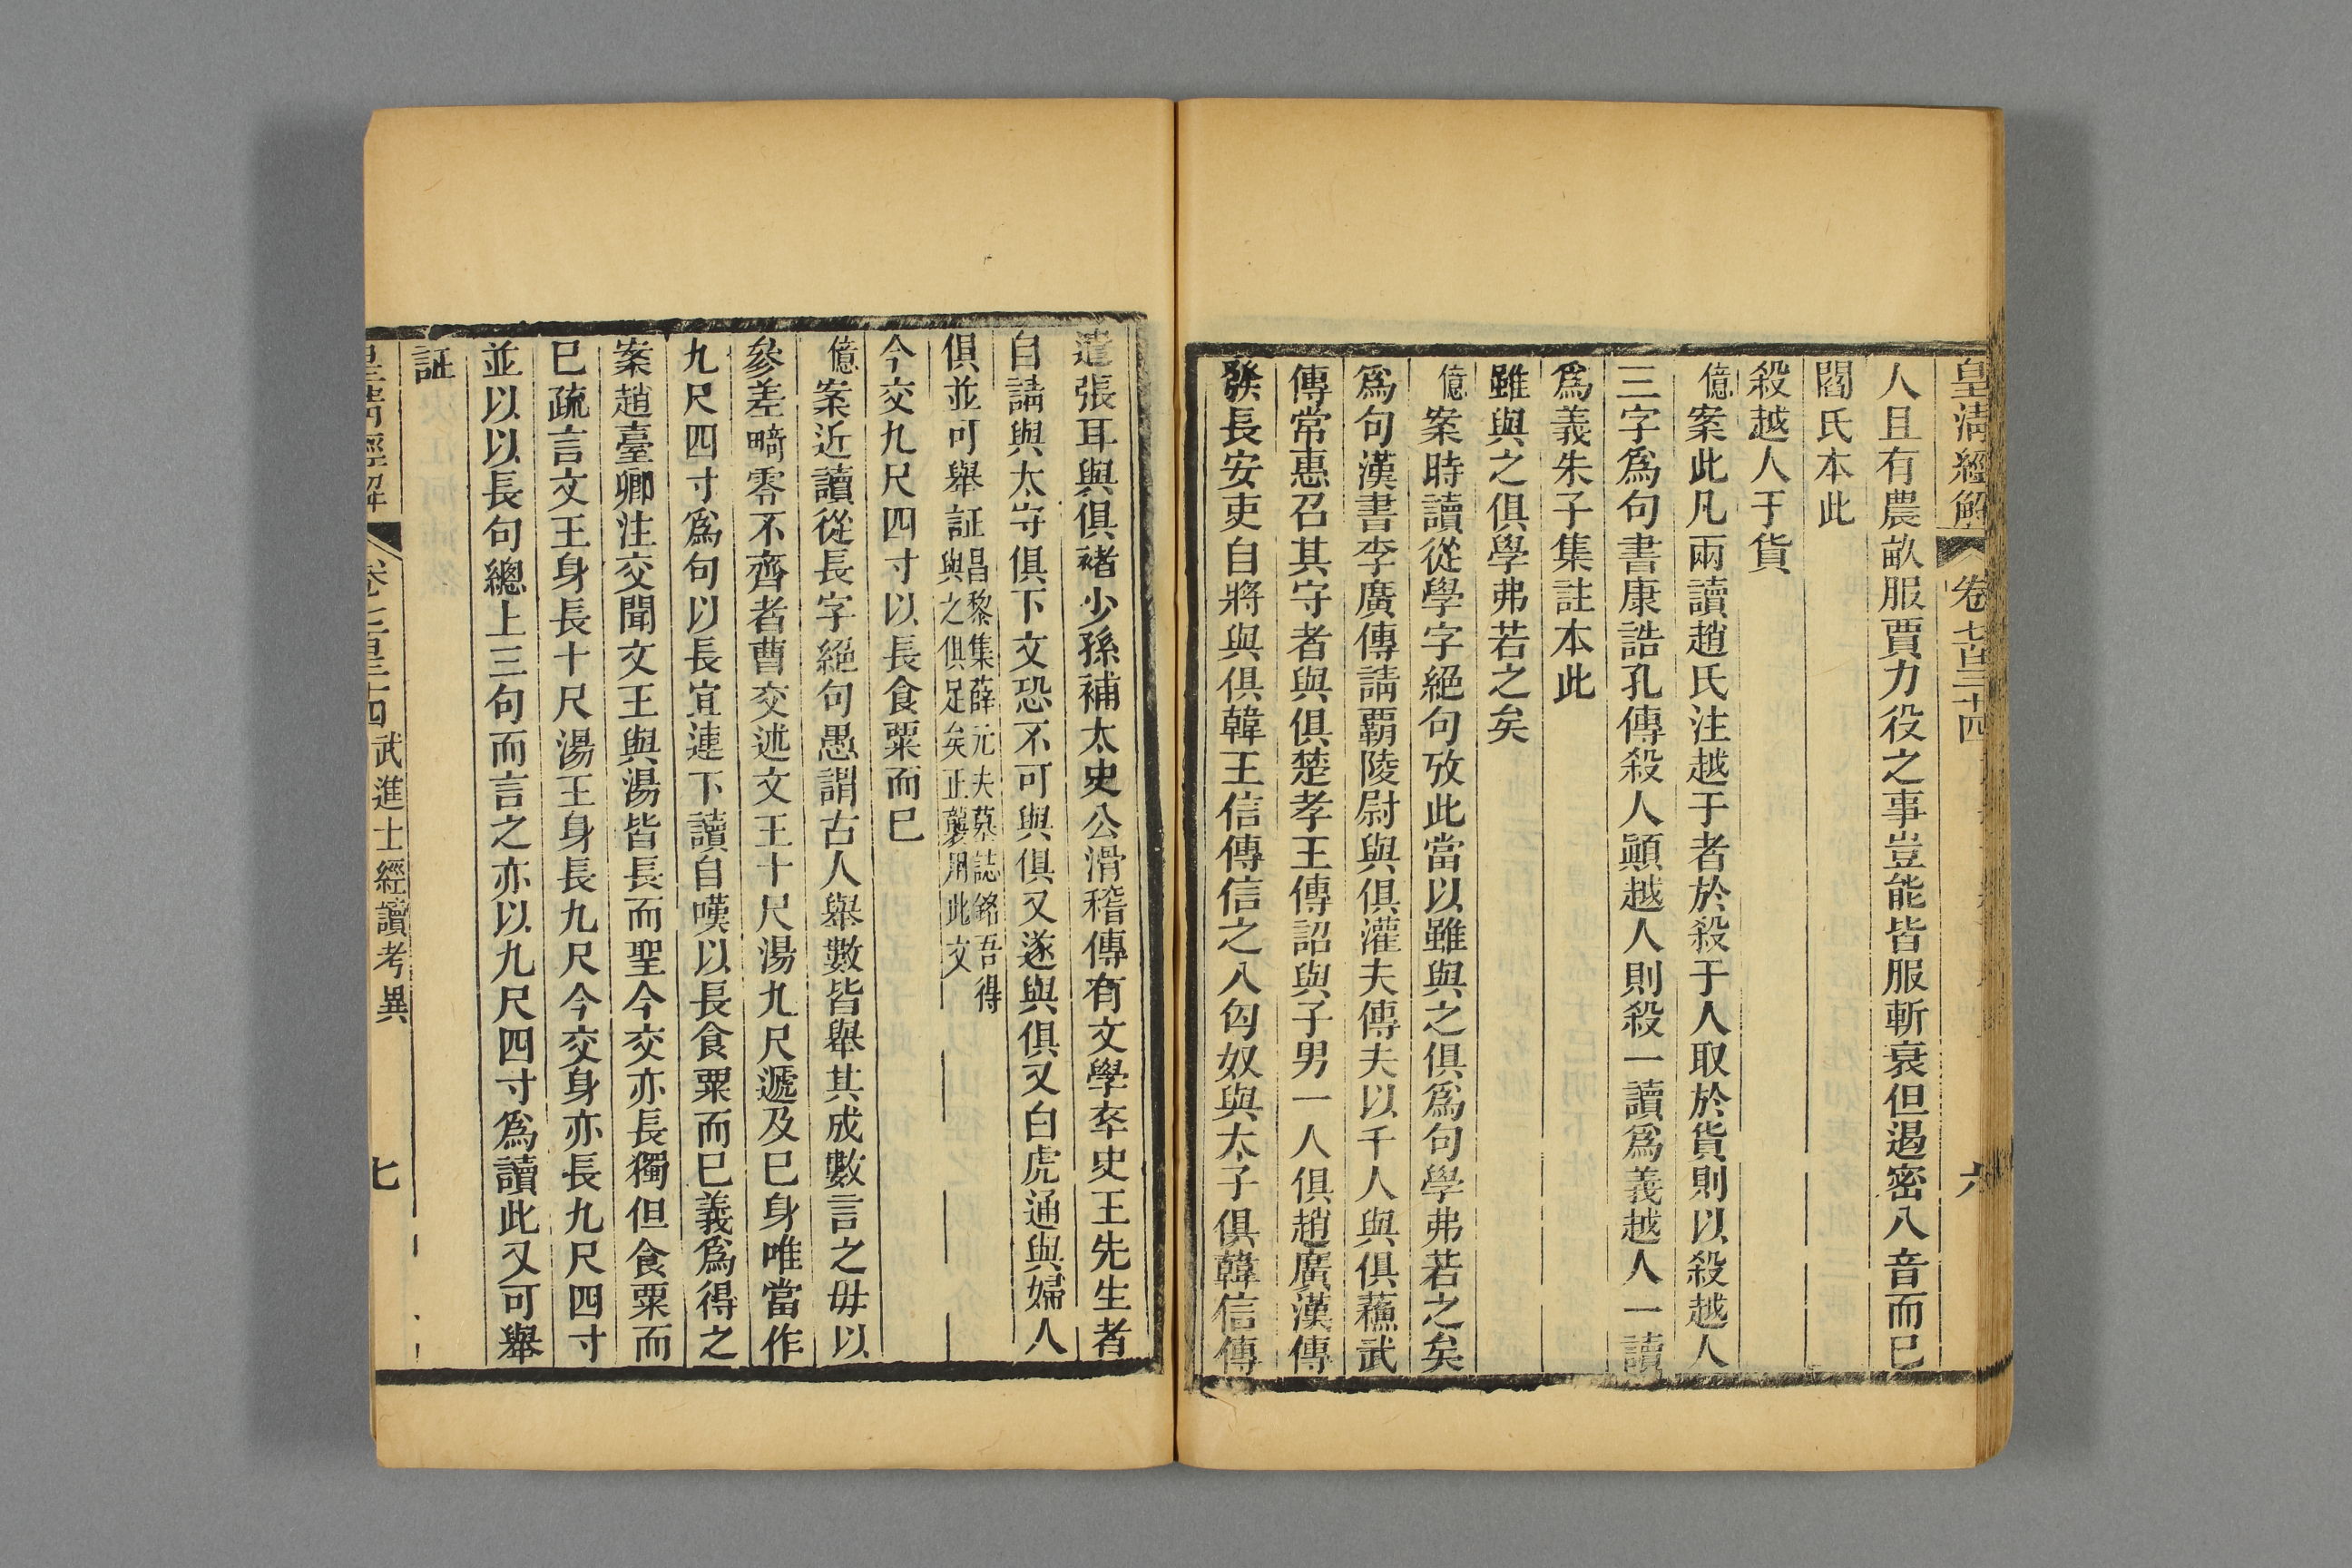 皇清經解 卷七百二十四 六
人且有農畝服賈力役之事豈能皆服斬衰但遏密八音而已
閻氏本此
殺越人于貨
億案此凡兩讀趙氏注越于者於殺于人取於貨則以殺越人
三字爲句書康誥孔傳殺人顚越人則殺一讀爲義越人一讀
爲義朱子集註本此
雖與之俱學弗若之矣
億案時讀從學字絕句攷此當以雖與之俱爲句學弗若之矣
爲句漢書李廣傳請覇陵尉與俱灌夫傳夫以千人與俱蘓武
傳常惠召其守者與俱楚孝王傳詔與子男一人俱趙廣漢傳
發長安吏自將與俱韓王信傳信之入匈奴與太子俱韓信傳
遣張耳與俱褚少孫補太史公滑稽傳有文學卒史王先生者
自請與太守俱下文恐不可與俱又遂與俱又白虎通與婦人
俱並可舉証昌黎集薛元夫墓誌銘吾得與之俱足矣正襲用此文
今交九尺四寸以長食粟而已
億案近讀從長字絕句愚謂古人舉數皆舉其成數言之毋以
參差畸零不齊者曹交述文王十尺湯九尺遞及已身唯當作
九尺四寸爲句以長宜連下讀自嘆以長食粟而已義爲得之
案趙臺卿注交聞文王與湯皆長而聖今交亦長獨但食粟而
已疏言文王身長十尺湯王身長九尺今交身亦長九尺四寸
並以以長句總上三句而言之亦以九尺四寸爲讀此又可舉
証
皇清經解 卷七百二十四 武進士經讀考異 七